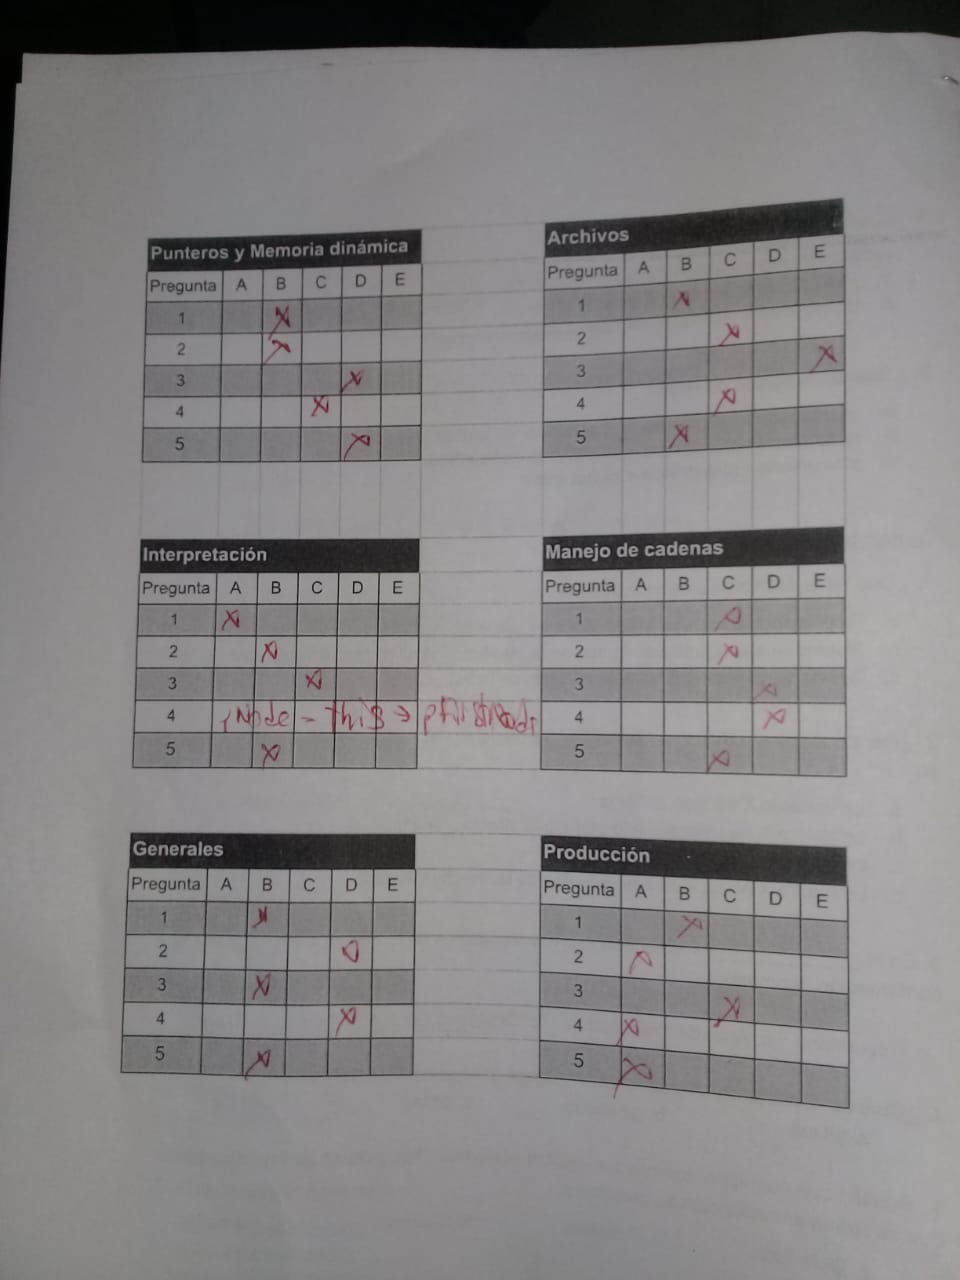 Punteros y Memoria dinámica
Pregunta A B C D E
1 X
2 X
3 X
4 X
5 X
Archivos
Pregunta A B C D E
1 X
2 X
3 X
4 X
5 X
Interpretación
Pregunta A B C D E
1 X
2 X
3 X
4 - this →
5 X
Manejo de cadenas
Pregunta A B C D E
1 X
2 X
3 X
4 X
5 X
Generales
Pregunta A B C D E
1 X
2 X
3 X
4 X
5 X
Producción
Pregunta A B C D E
1 X
2 X
3 X
4 X
5 X